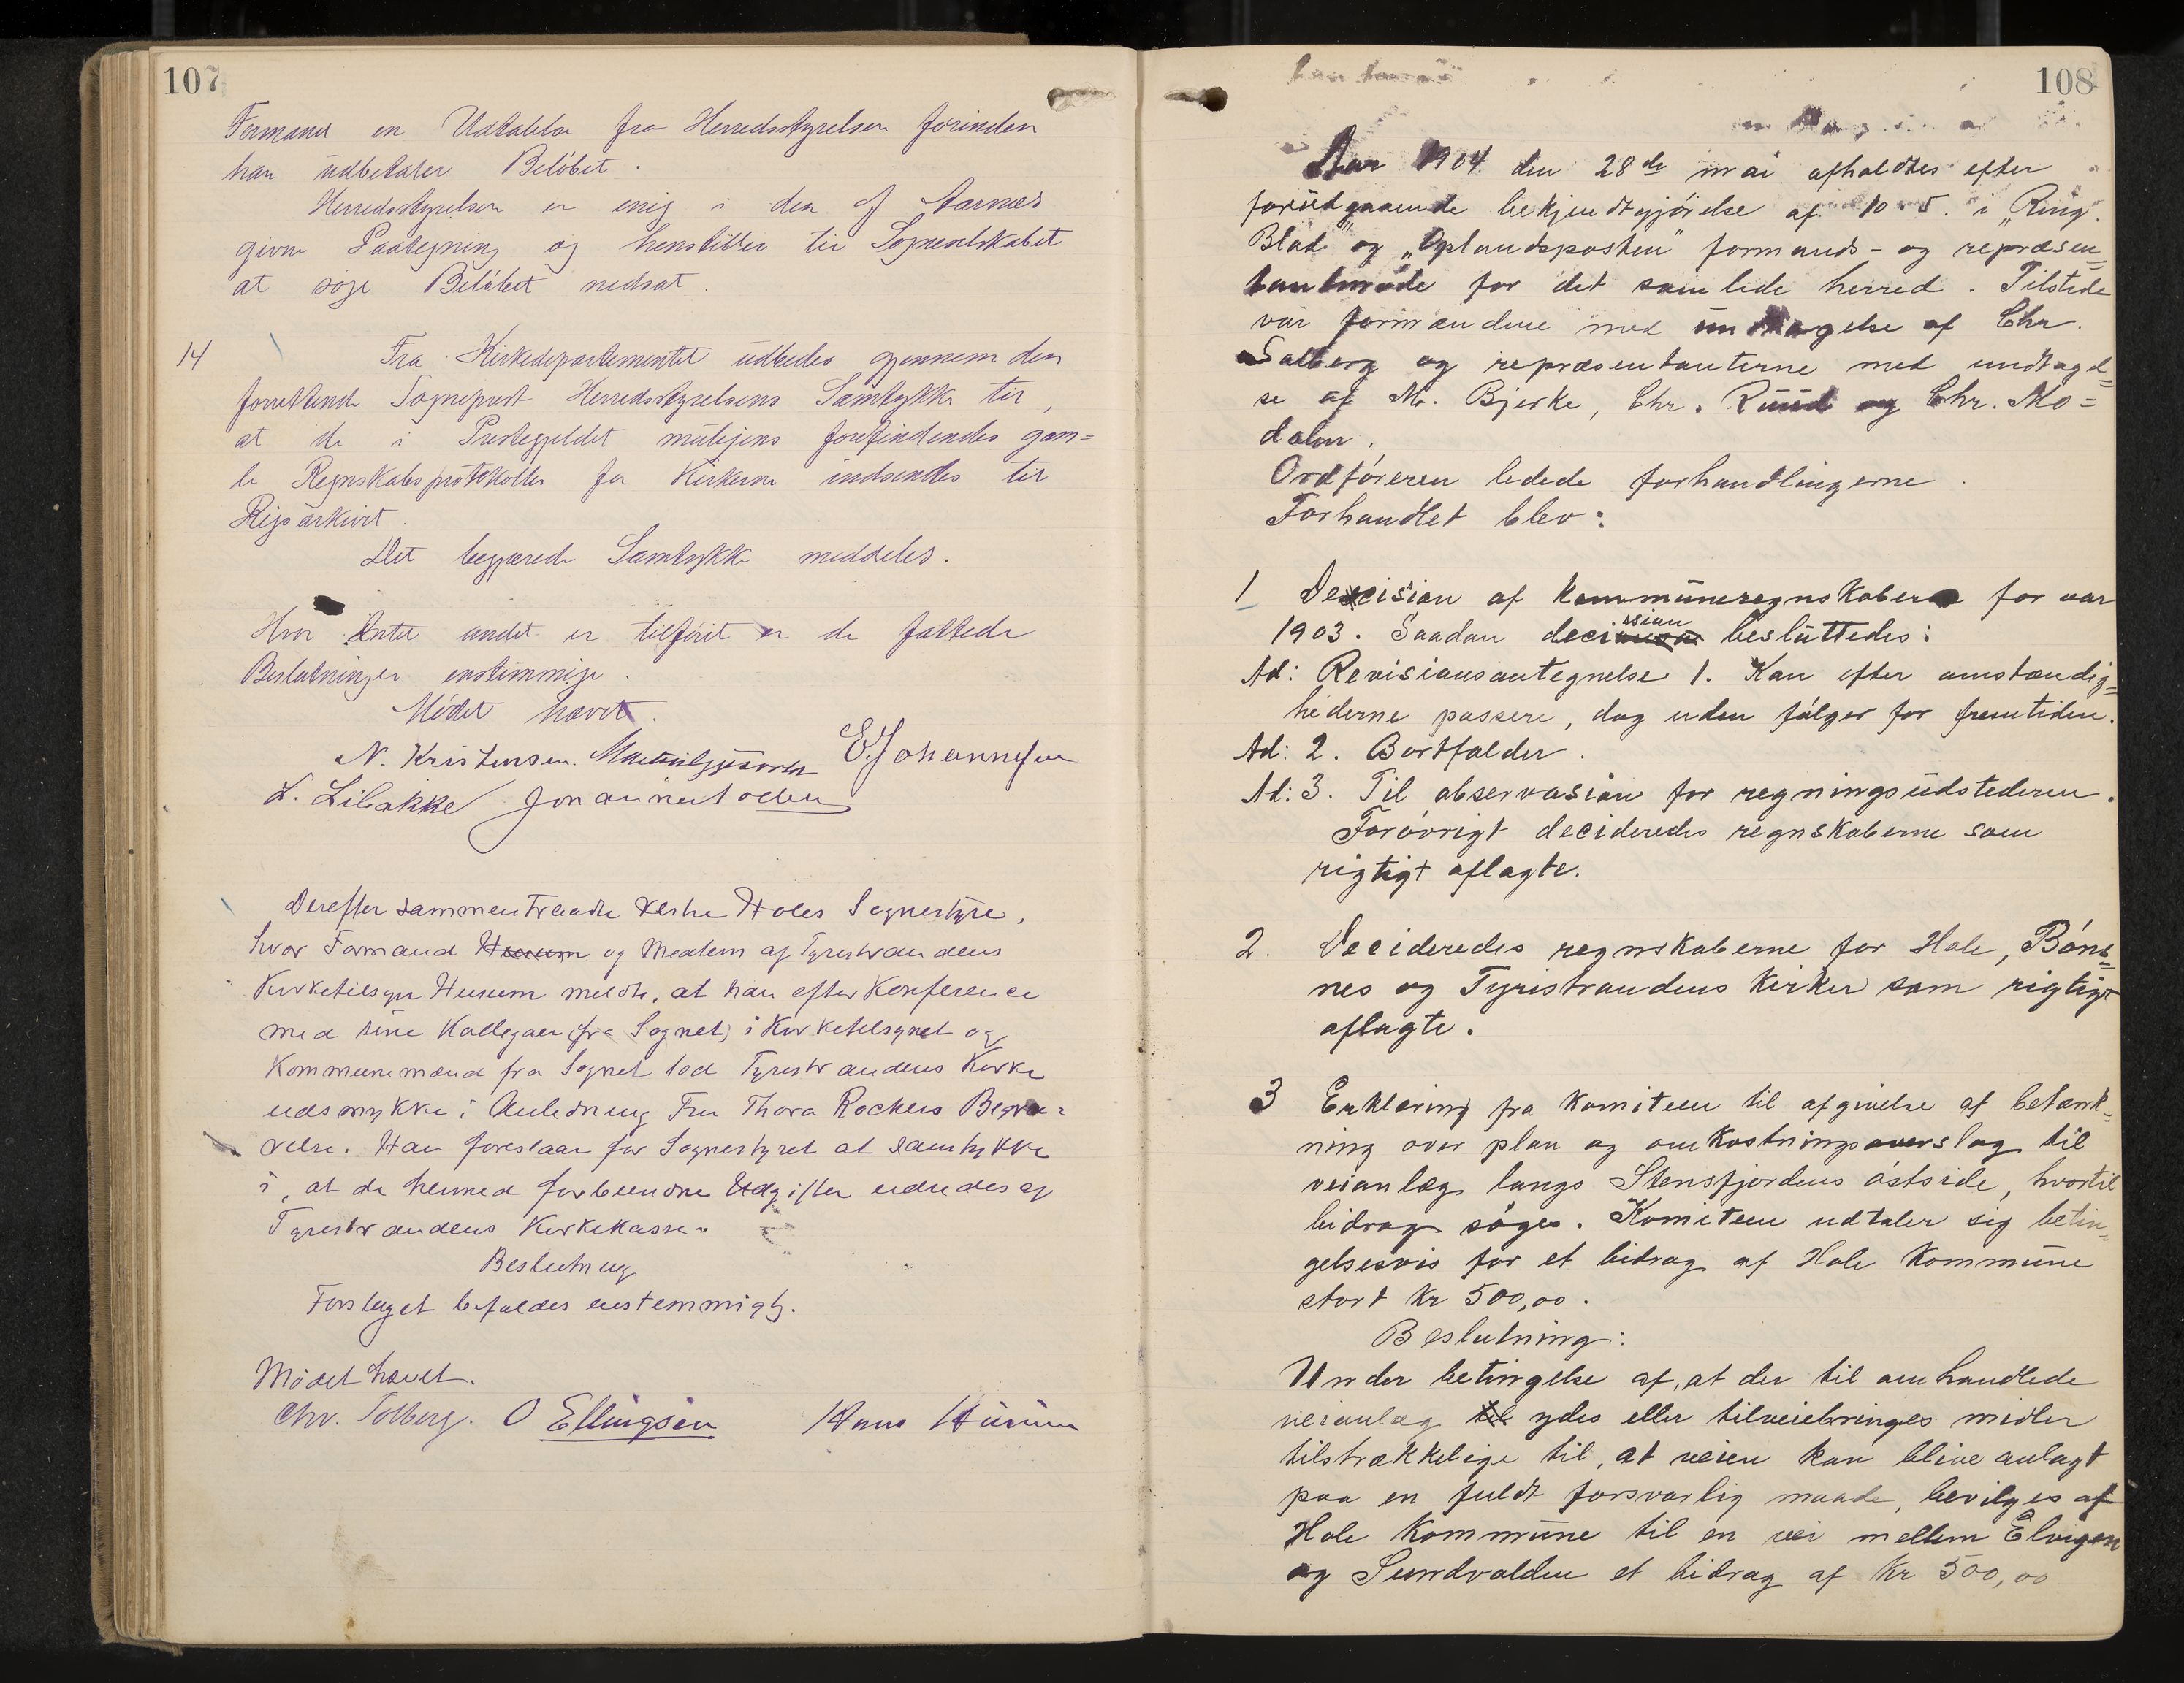 107
Formand en Udtalelse fra Herredsstyrelsen forinden
han udbetaler Beløbet.
Herredsstyrelsen er enig i den af Aarnæs
givne Paategning og henstiller til Sogneselskabet
at søge Beløbet nedsat.
14 Fra Kirkedepartementet udbedes gjennem den
forrettende Sogneprest Herredsstyrelsens Samtykke til,
at de i Prestegjeldet muligens forefindendes gam=
le Regnskabsprotokoller for Kirkerne indsendes til
Rigsarkivet.
Det begjærede Samtykke meddeles.
Hvor Intet andet er tilført er de fattede
Beslutninger enstemmige.
Mødet hævet.
N. Kristensen. E. Johannesen
L. Libakke
Derefter sammentraadte Vestre Holes Sognestyre,
hvor Formand Hurum og Medlem af Tyristrandens
Kirketilsyn Hurum meldte, at han efter Konference
med sine Kollegaer (fra Sognet) i Kirketilsynet og
Kommunemænd fra Sognet lod Tyristrandens Kirke
udsmykke i Anledning Fru Thora Rockers Begra=
velse. Han foreslaar for Sognestyret at samtykke
i, at de hermed forbundne Udgifter udredes af
Tyristrandens Kirkekasse.
Beslutning
Forslaget bifaldes enstemmigt.
Mødet hævet.
Chr. Solberg. O Ellingsen Hans Hurum
108
Aar 1904 den 28de mai afholdtes efter
forudgaaende bekjendtgjørelse af 10-5. i "Ring.
Blad" og "Oplandsposten" formands- og repræsen=
tantmøde for det samlede herred. Tilstede
var formændene med undtagelse af Chr.
Solberg og repræsentanterne med undtagel=
se af M. Bjerke, Chr. Ruud og Chr. Mo=
dalen.
Ordføreren ledede forhandlingerne.
Forhandlet blev:
1 Decision af kommuneregnskaberne for aar
1903. Saadan decission besluttedes:
Ad: Revisionsantegnelse 1. Kan efter omstændig=
hederne passere, dog uden følger for fremtiden.
Ad: 2. Bortfalder.
Ad: 3. Til observasion for regningsudstederen.
Forøvrigt decideredes regnskaberne som
rigtigt aflagte.
2. Decideredes regnskaberne for Hole, Bøns=
nes og Tyristrandens kirker som rigtigt
aflagte.
3 Erklæring fra komiteen til afgivelse af betænk=
ning over plan og omkostningsoverslag til
veianlæg langs Stensfjordens østside, hvortil
bidrag søges. Komiteen udtaler sig betin=
gelsesvis for et bidrag af Hole kommune
stort kr 500,00.
Beslutning:
Under betingelse af, at der til omhandlede
veianlæg til ydes eller tilveiebringes midler
tilstrækkelige til, at veien kan blive anlagt
paa en fuldt forsvarlig maade, bevilges af
Hole kommune til en vei mellem Elvigen
og Sundvolden et bidrag af kr 500,00